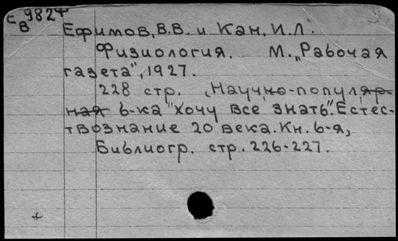 Е 9824
В
Ефимов, В.В. и Кан, И.Л.
Физиология. М. „Рабочая
газета", 1927.
228 стр. „Научно-популяр-
ная б-ка "Хочу все знать". Естес-
твознание 20 века. Кн. 6-я,
Библиогр. стр. 226-227.